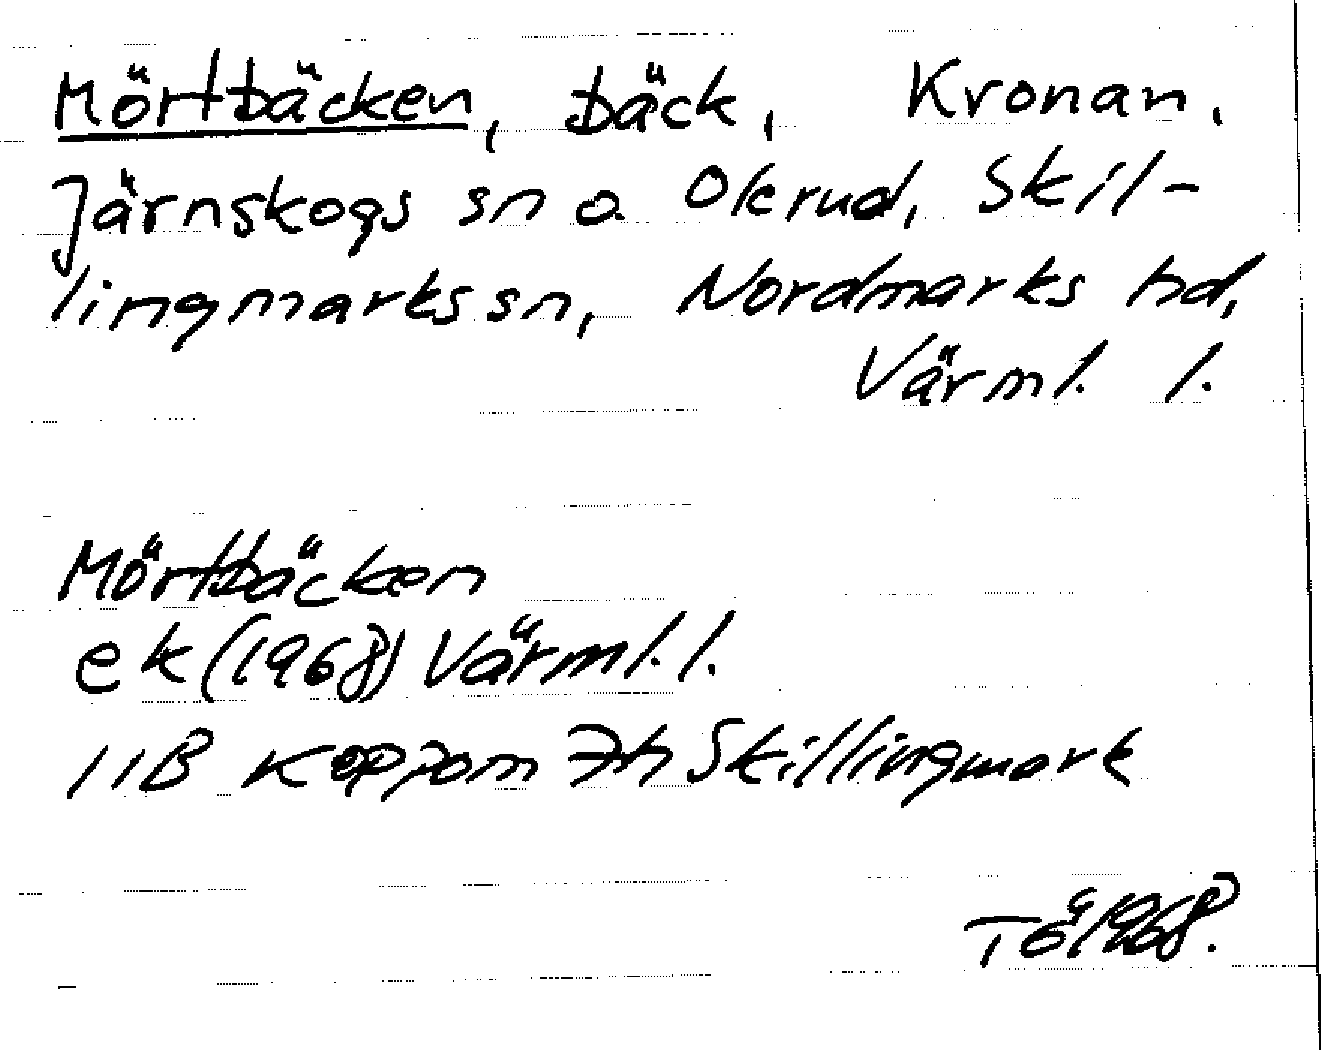 Mörtbäcken, bäck, Kronan,
Järnskogs sn o. Olerud, Skil-
lingmarks sn, Nordmarks hd,
Värml. l.
Mörtbäcken
ek (1968) Värml. l.
11B Koppom 7h Skillingmark
TÖ 1968.